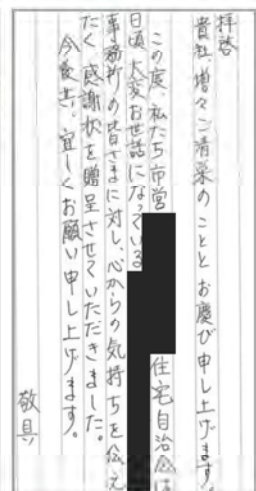 拝啓
貴社増々ご清栄のこととお慶び申し上げます。
この度、私たち市営 住宅自治会は
日頃大変お世話になっている
事務所の皆さまに対し、心からの気持ちを伝え
たく感謝状を贈呈させていただきました。
今後共、宜しくお願い申し上げます。
敬具